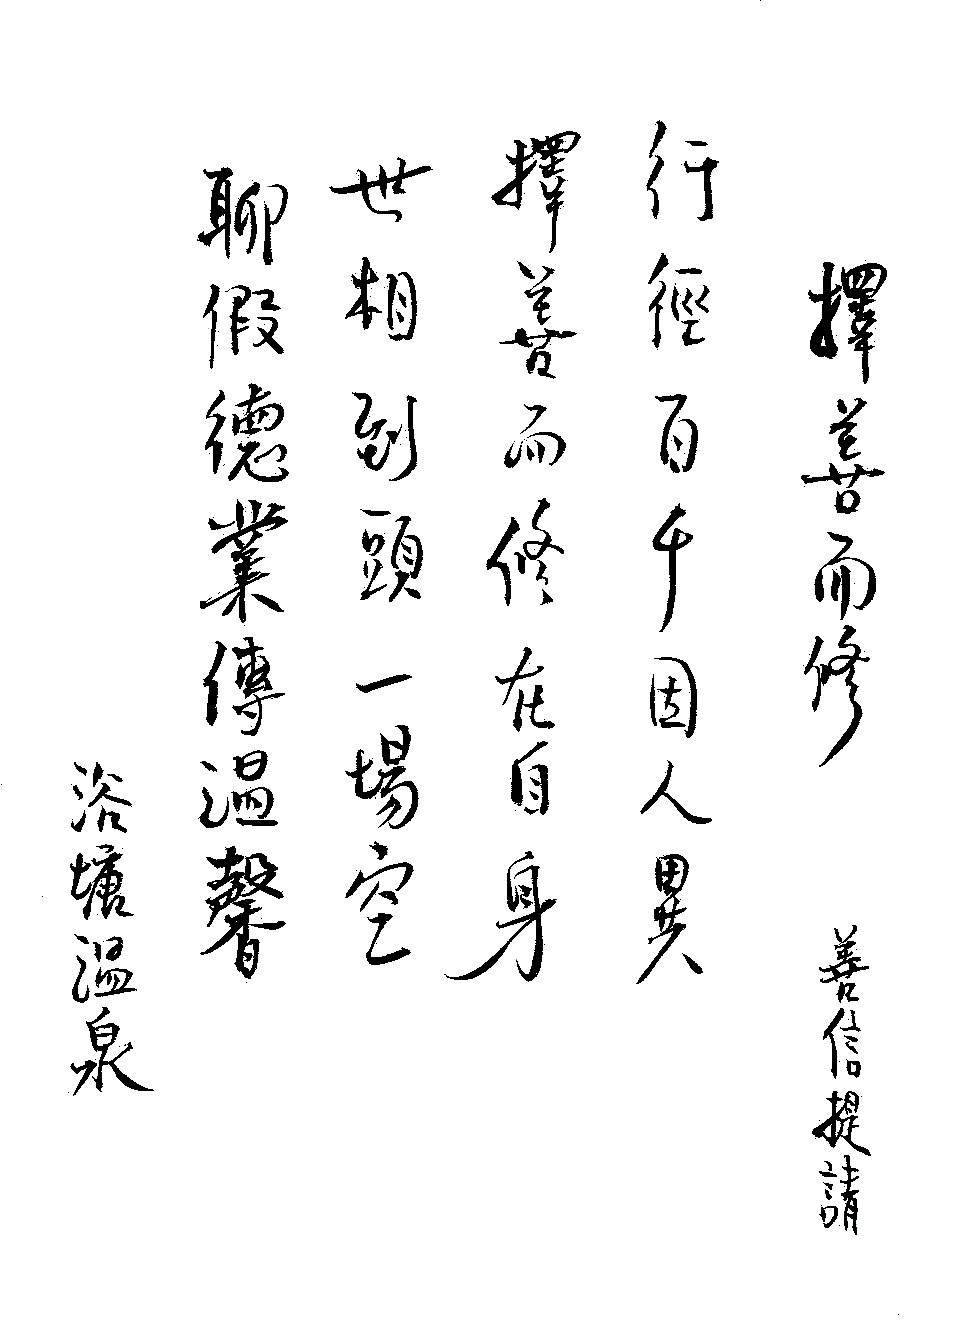 擇善而修
善信提請
行徑百千因人異
擇善而修在自身
世相到頭一場空
聊假德業傳溫馨
浴塘溫泉